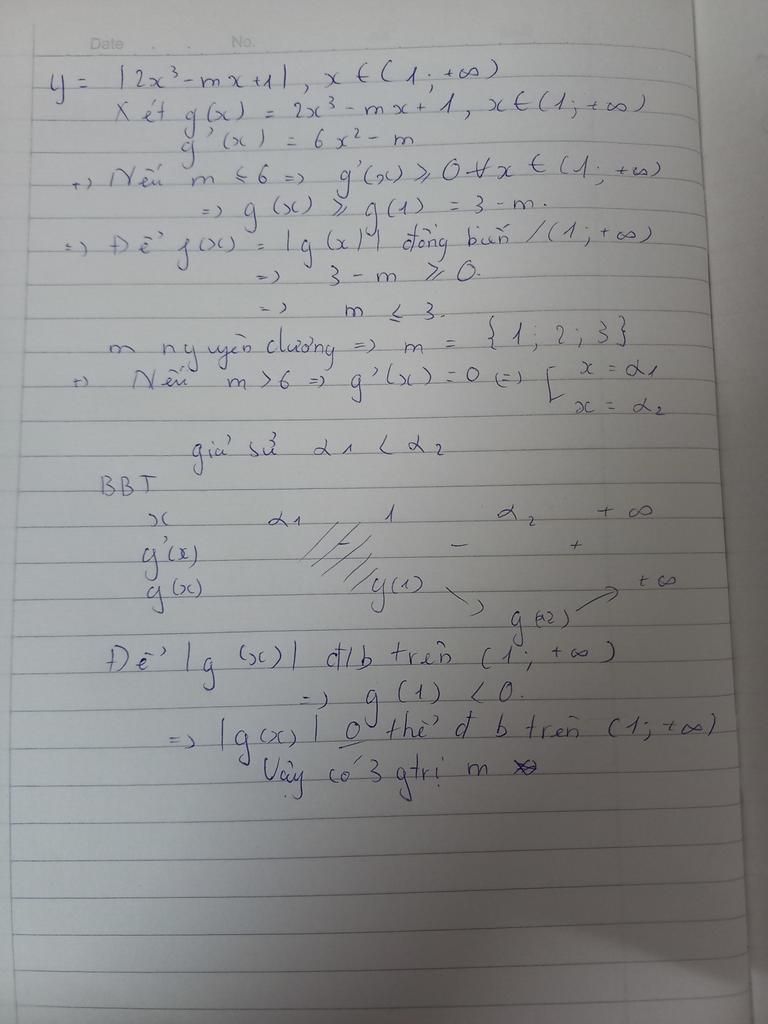 Date . . No.
y = |2x³ - mx + 1|, x ∈ (1; +∞)
Xét g(x) = 2x³ - mx + 1, x ∈ (1; +∞)
g'(x) = 6x² - m
+) Nếu m ≤ 6 => g'(x) ≥ 0 ∀x ∈ (1; +∞)
=> g(x) ≥ g(1) = 3 - m.
=> Để f(x) = |g(x)| đồng biến /(1; +∞)
=> 3 - m ≥ 0.
=> m ≤ 3.
m nguyên dương => m = {1; 2; 3}
+) Nếu m > 6 => g'(x) = 0 (=) [ x = α1
x = α2
giả sử α1 < α2
BBT
x α1 1 α2 + ∞
g'(x) - - +
g(x) g(1) g(α2) +∞
Để |g(x)| đ/b trên (1; +∞)
=> g(1) < 0.
=> |g(x)| 0 thể đ b trên (1; +∞)
Vậy có 3 gtrị m